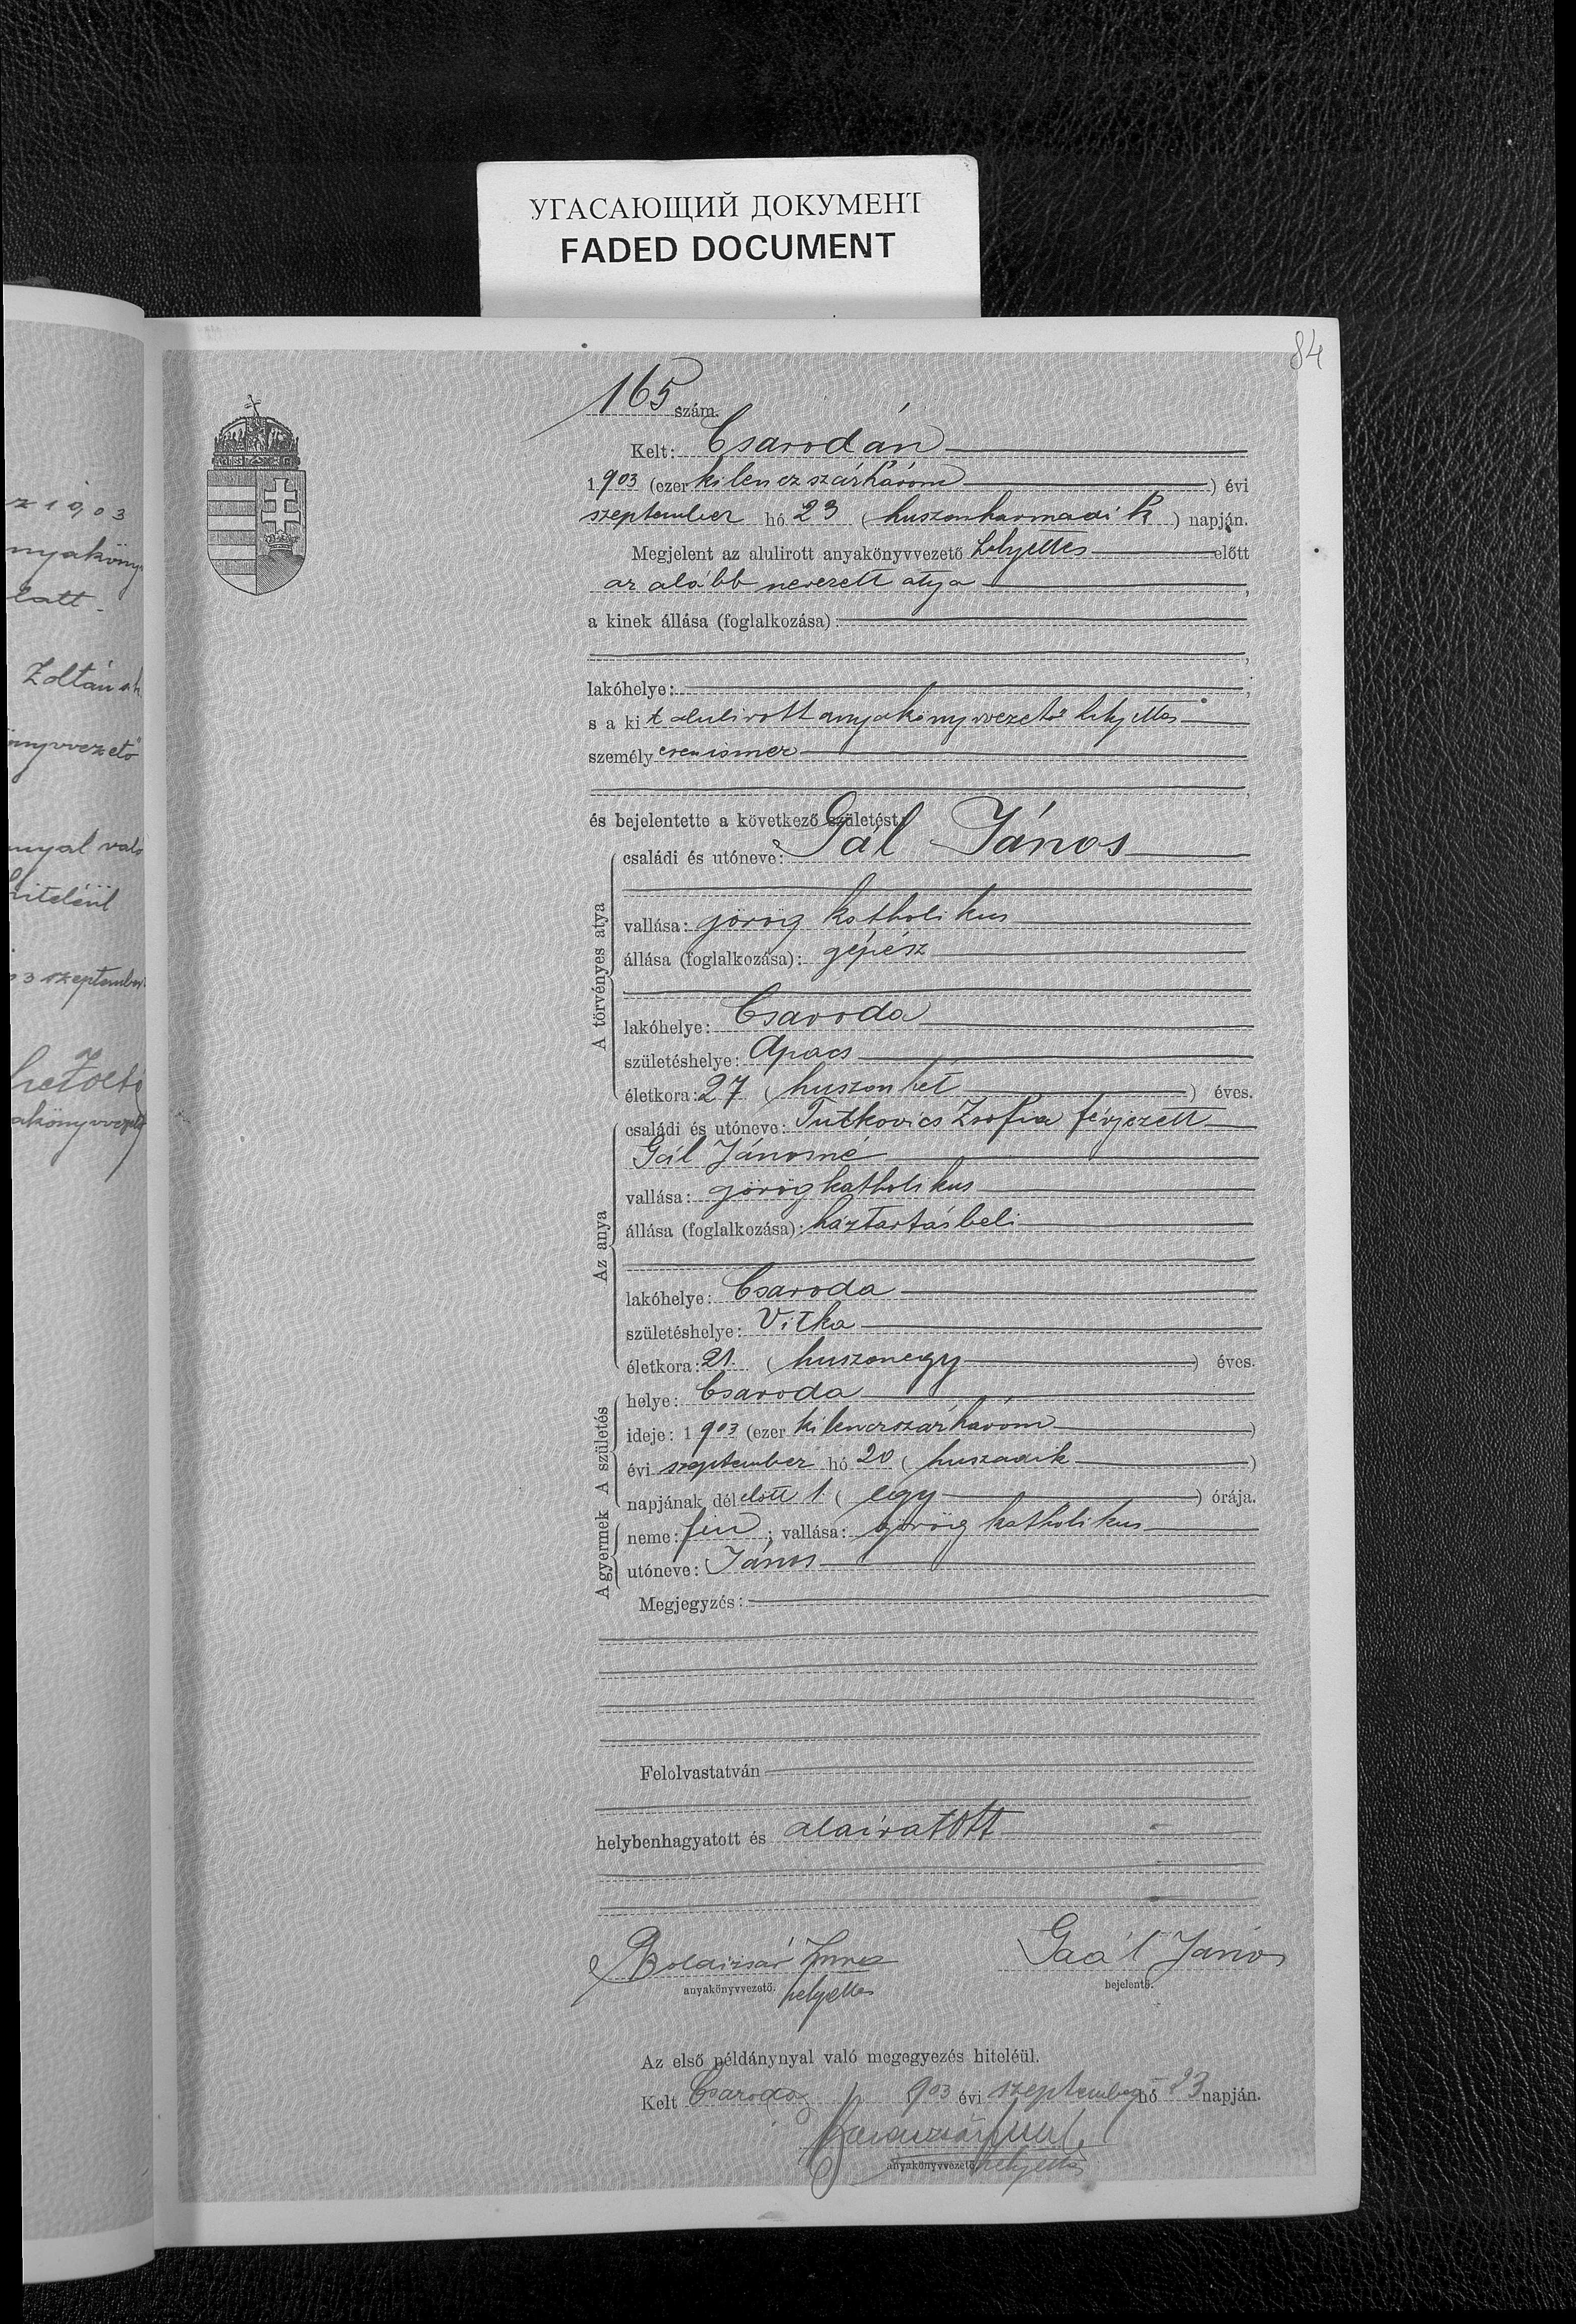 УГАСАЮЩИЙ ДОКУМЕНТ
FADED DOCUMENT
84
z 1903
nyaköny
latt.
Zoltán
önyvvezető
nyal való
hiteléül
3 szeptember
akönyvvezető
165 szám.
Kelt: Csarodán
1903 (ezer kilenczszázhárom) évi
szeptember hó 23 (huszonharmadik) napján.
Megjelent az alulirott anyakönyvvezető helyettes előtt
az alább nevezett atya,
a kinek állása (foglalkozása):
lakóhelye:
s a kit alulirott anyakönyvvezető helyettes
személyesen ismer
és bejelentette a következő születést:
A törvényes atya
családi és utóneve: Gál János
vallása: görög katholikus
állása (foglalkozása): gépész
lakóhelye: Csaroda
születéshelye: Apacs
életkora: 27 (huszonhét) éves.
Az anya
családi és utóneve: Tutkovics Zsófia férjezett
Gál Jánosné
vallása: görög katholikus
állása (foglalkozása): háztartásbeli
lakóhelye: Csaroda
születéshelye: Vitka
életkora: 21. (huszonegy) éves.
A születés
helye: Csaroda
ideje: 1903 (ezer kilenczszázhárom)
évi szeptember hó 20 (huszadik)
napjának délelőtt 1 (egy) órája.
A gyermek
neme: fiu; vallása: görög katholikus
utóneve: János
Megjegyzés:
Felolvastatván
helybenhagyatott és aláiratott
Gaál János
anyakönyvvezető. helyettes
bejelentő.
Az első példánynyal való megegyezés hiteléül.
Kelt Csaroda 903 évi szeptember hó 23 napján.
anyakönyvvezető helyettes